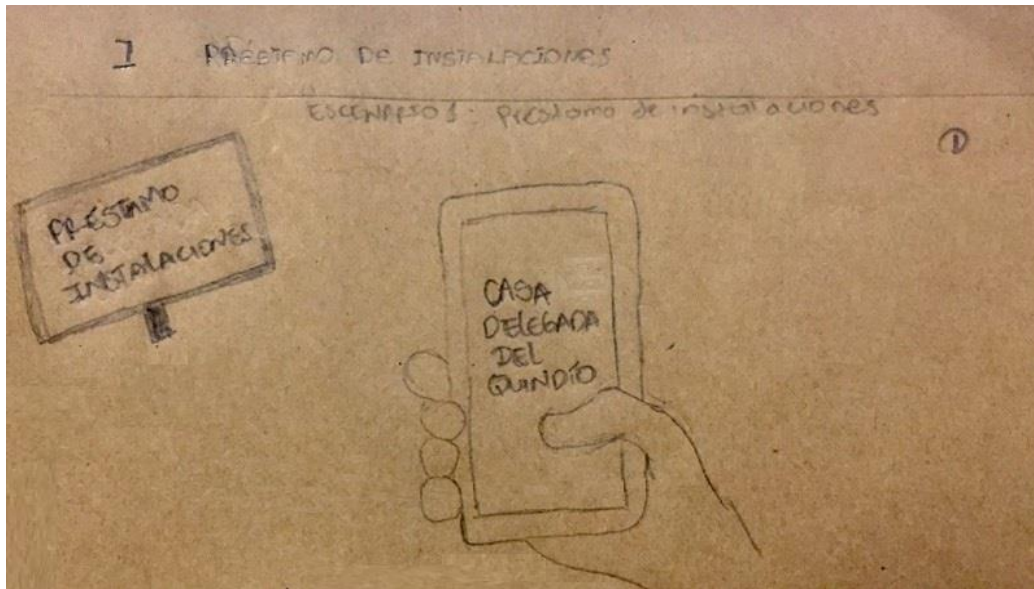 1 PRÉSTAMO DE INSTALACIONES
ESCENARIO 1 - Préstamo de instalaciones
1
PRÉSTAMO
DE
INSTALACIONES
CASA
DELEGADA
DEL
QUINDÍO